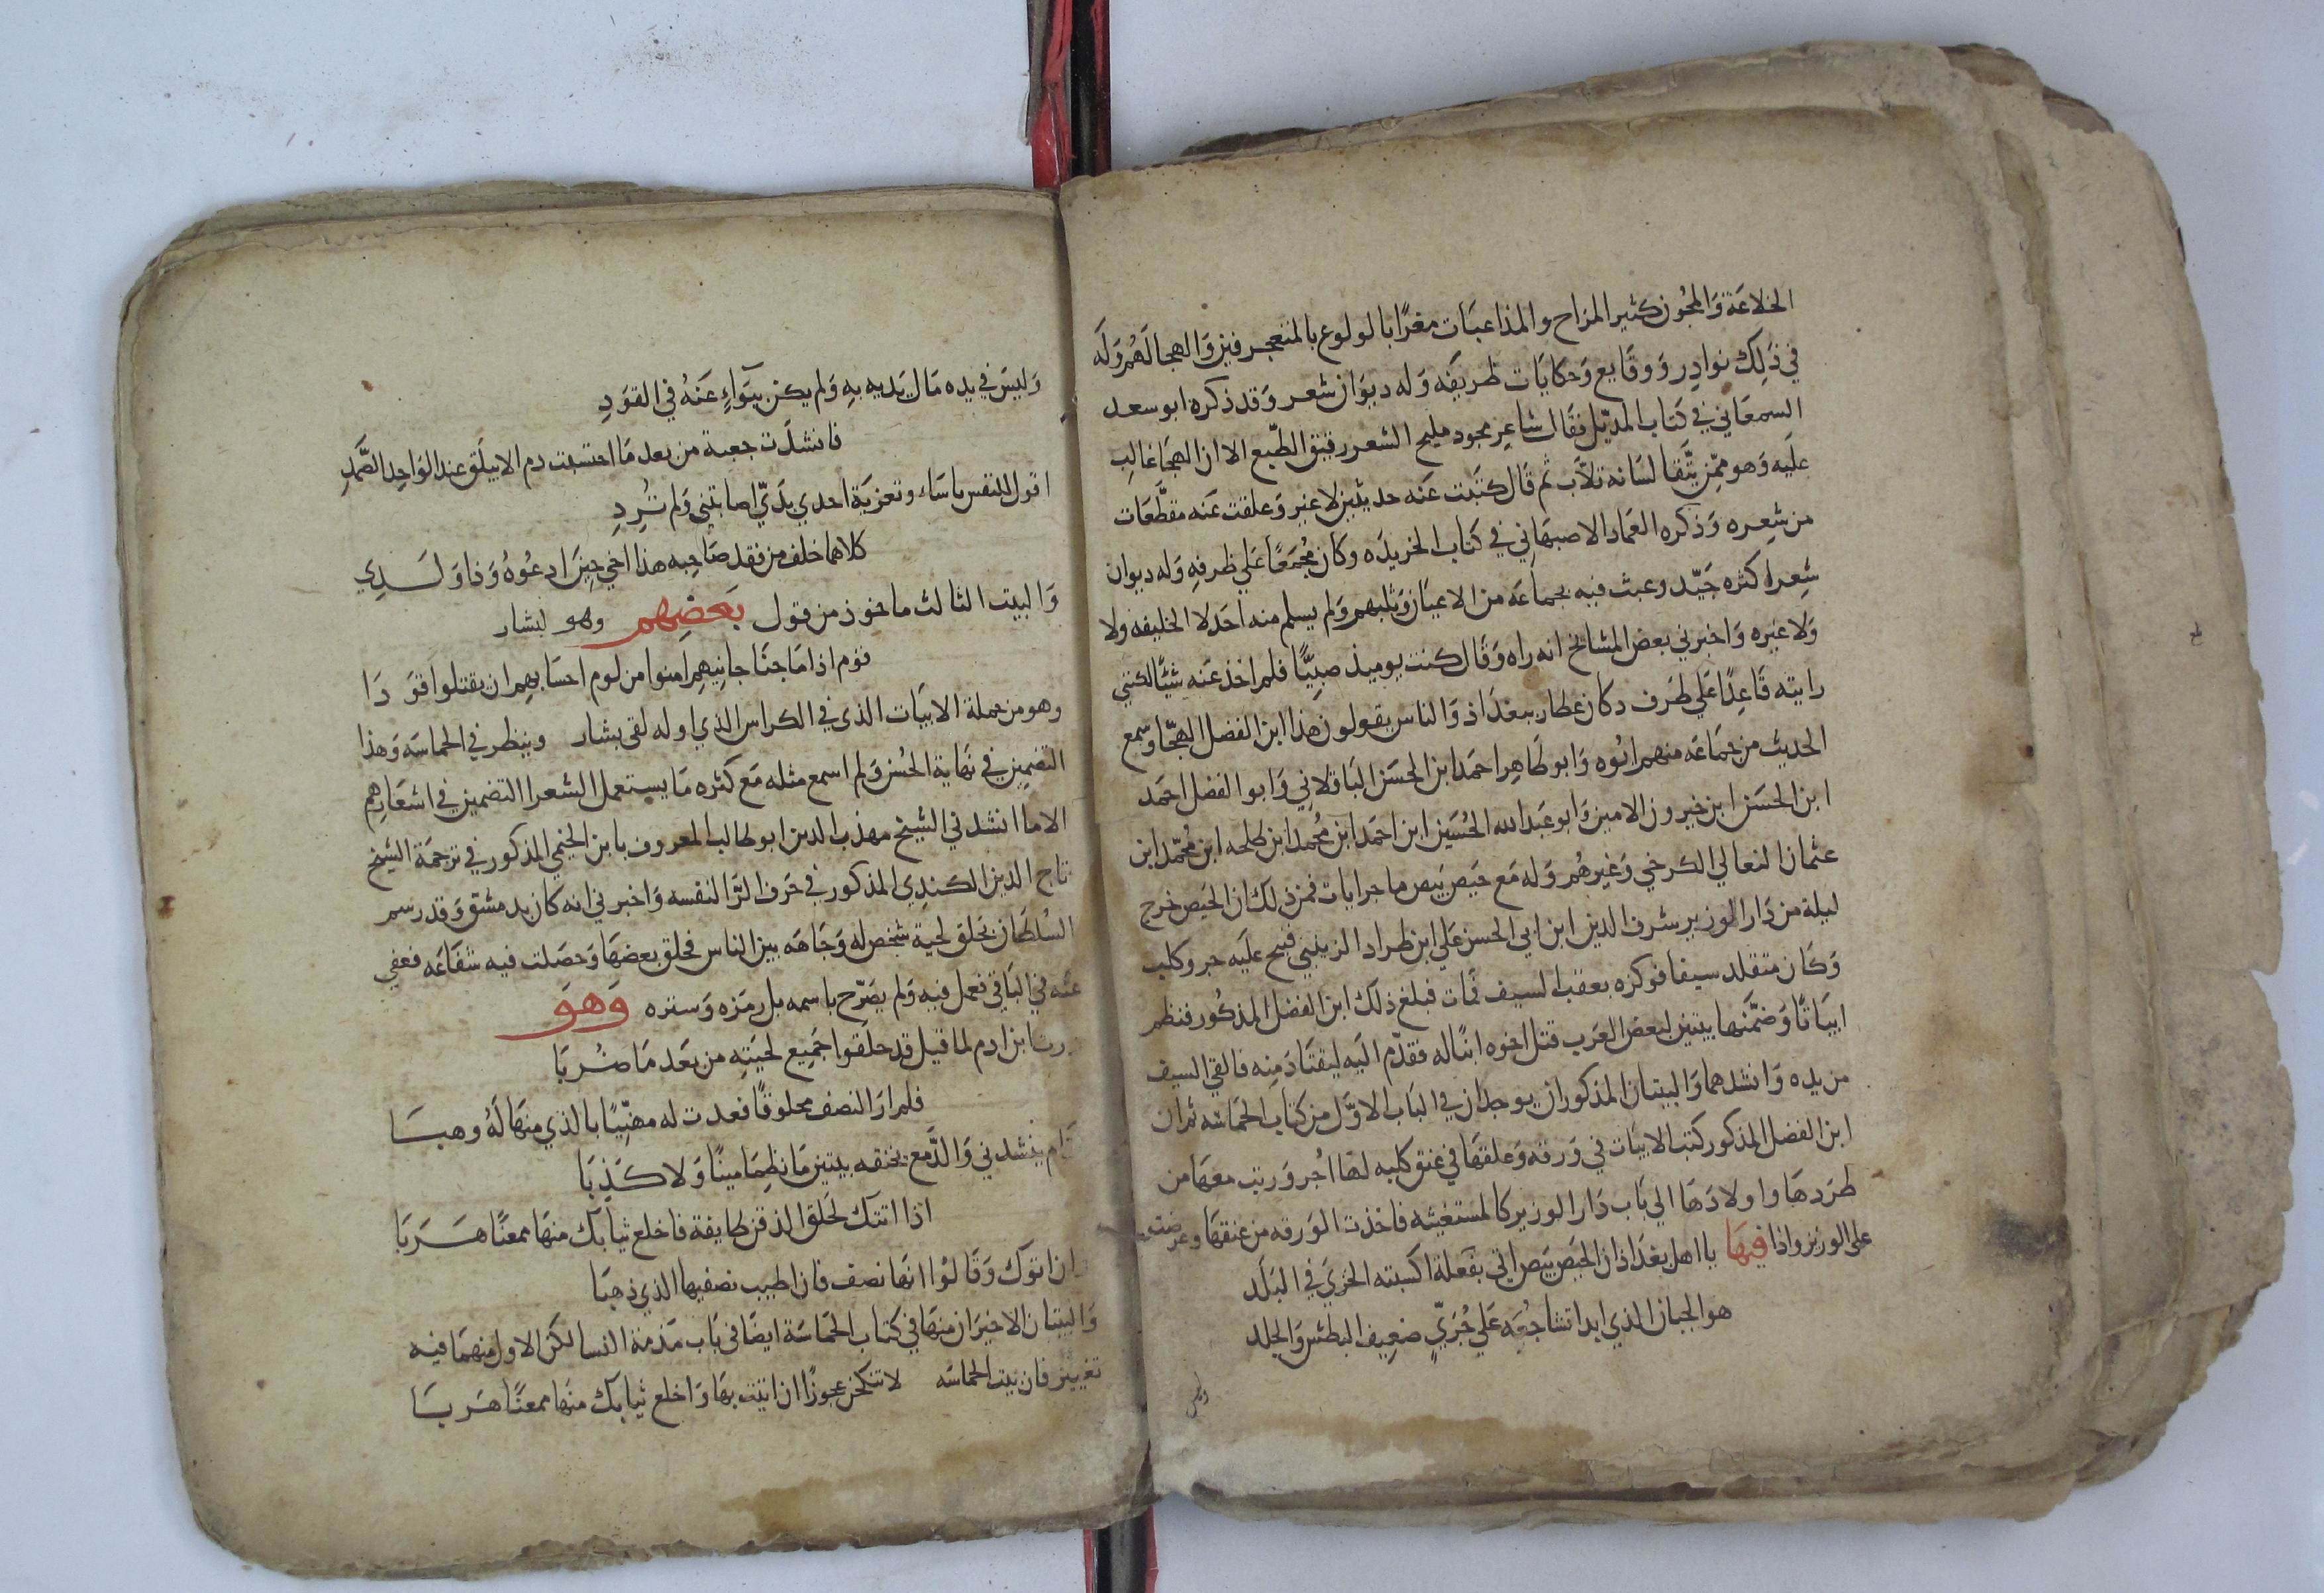 الخلاعَة وَالمجُون كثير المزاح والمذاعبَات مغرًا بالولوع بالمتعجرفين وَالهجا لَهُم وَلَه
في ذَلِك نوادِر وَوقَايع وَحكايَات ظريفَه وَله ديوَان شعر وَقد ذكره ابو سعد
السمعَاني في كتاب المذيّل فقَال شاعِر مجود مليح الشعر رقيق الطّبع الا ان الهجَا غالِب
علَيه وَهو ممّن يتَّقا لسَانه ثلاّب ثم قَال كتَبت عَنه حديثين لا غير وَعلقت عَنه مقطَّعَات
من شعِره وَذكره العمَاد الاصبهَانِي في كتَاب الخريدَه وكان مُجْمَعًا عَلي ظرفهِ وَله ديوان
شِعر اكثره جَيّد وعبث فيه بجماعَه من الاعيَان وَثلبهم وَلم يسلم منه احَد لا الخليفه ولا
وَلا غيره وَاخبرني بعض المشايخ انه راه وَقَال كنت يوميذ صبِيًّا فلم اخذ عَنه شيًّا لكنني
رايته قَاعِدًا عَلي طَرف دكان عطار ببغدَاذ وَالناس يقولون هَذا ابن الفضل الهجّا وسمع
الحديث من جمَاعَه منهم ابُوه وَابو طَاهِر احمَد ابن الحسَن البَاقلاني وَابو الفضل احمَد
ابن الحسَن ابن خيرون الامين وَابو عَبد الله الحُسَين ابن احمَد ابن محُمد ابن طلحه ابن محُمّد ابن
عثمان النعالي الكرخي وَغيرهُم وَله مَع حَيص بَيص ماجرايات فمن ذلك ان الحَيص خرج
ليلة من دَار الوزير شرف الدين ابن ابي الحسن عَلي ابن طراد الزينبي فنبح علَيه جرو كلب
وَكَان متقلد سيفا فوكزه بعقب السيف فمَات فبلغ ذلك ابن الفضل المذكُور فنظم
ابيَاتًا وَضمَّنهَا بيتين لبعض العَرب قتل اخوه ابنًا له فقدّم اليَه ليقتَاد مِنه فالقي السيف
من يده وَانشدهما وَالبيتان المذكوران يوجدان في البَاب الاوّل من كتاب الحمَاسَه ثم ان
ابن الفضل المذكور كتب الابيَات في وَرقه وَعلقهَا في عنق كلبه لهَا اجُر وَرتب معهَا من
طرَدهَا واولادَهَا الي بَاب دَار الوزير كالمستغيثه فاخذت الوَرقه من عنقهَا وعرضت
على الوزير واذا فيهَا يا اهل بغدَاذ ان الحَيص بَيص اتي بفَعلة اكسبته الخزيَ في البَلَد
هو الجبان الذي ابدا تشاجُعَه عَلي جُرَيٍّ ضعِيف البَطش وَالجلد
وليس
وَليسَ في يده مَال يَديه بهِ وَلم يكن ببَوَاءٍ عَنهُ في القوَدِ
فانشدَت جعبة من بعد مَا احتسبت دم الابيلَق عند الوَاحِد الصَّمَدِ
اقول للنفس باسَاء وتعزيَة احدي يدَيّ اصابتني وَلم تُردِ
كلاهما خلف من فقد صَاحِبه هذا اخي حِينَ ادعُوهُ وَذا وَلَـسَـدِي
وَالبيت الثالث ماخوذ من قول بَعَضِهم وهو لبشار
قوم اذا مَا جنَا جانِيهِم امنوا من لوم احسَابهِم ان يقتلوا قوَدَا
وهو من جملة الابيَات الذي في الكراس الذي اوله لقى بشار وينظر في الحماسَه وَهذا
التضمِين في نهَاية الحُسن وَلم اسمع مثله مَع كثره مَا يستعمل الشعرا التضمين في اشعَارهم
الا ما انشدني الشيخ مهذب الدين ابو طالب المعروف بابن الخيمي المذكور في ترجمَة الشيخ
تاج الدين الكندي المذكور في حَرف الزَا لنفسه وَاخبرني انه كان بدمشق وَقد رسم
السُلطَان بحَلق لحية شخص له وَجَاهَه بين الناس فحلق بعضهَا وَحصَلت فيه شفَاعَه فعفي
عنَه في البَاقي فعمل فيه وَلم يصَرّح باسمه بل رمزه وَستره وَهوَ
زرت ابن ادم لما قيل قد حلقوا جَمِيع لحيَتهِ من بَعَد مَا ضُربَا
فلم ارَ النصف محلوقًا فعدت له مهنِّيًا بالذي منهَا لَهُ وهبَـا
قَام ينشدني وَالدَّمع يخنقه بيتين مَا نظِمَا مينًا وَلا كَذِبَا
اذا اتتك لحَلق الذقن طايفة فاخلع ثيابَك منهَا ممعنًا هَـرَبَا
وان اتوَك وَقَالوُا انهَا نصف فان اطيب نصفيها الذي ذهبَا
وَالبيتان الاخيرَان منهَا في كتاب الحمَاسَة ايضًا في بَاب مَذمة النسا لكن الاول منهمَا فيه
تغيير فان بيت الحماسَه لا تنكحن عجوزًا ان اتيت بهَا وَاخلع ثيابك منهَا ممعنًا هَربَـا